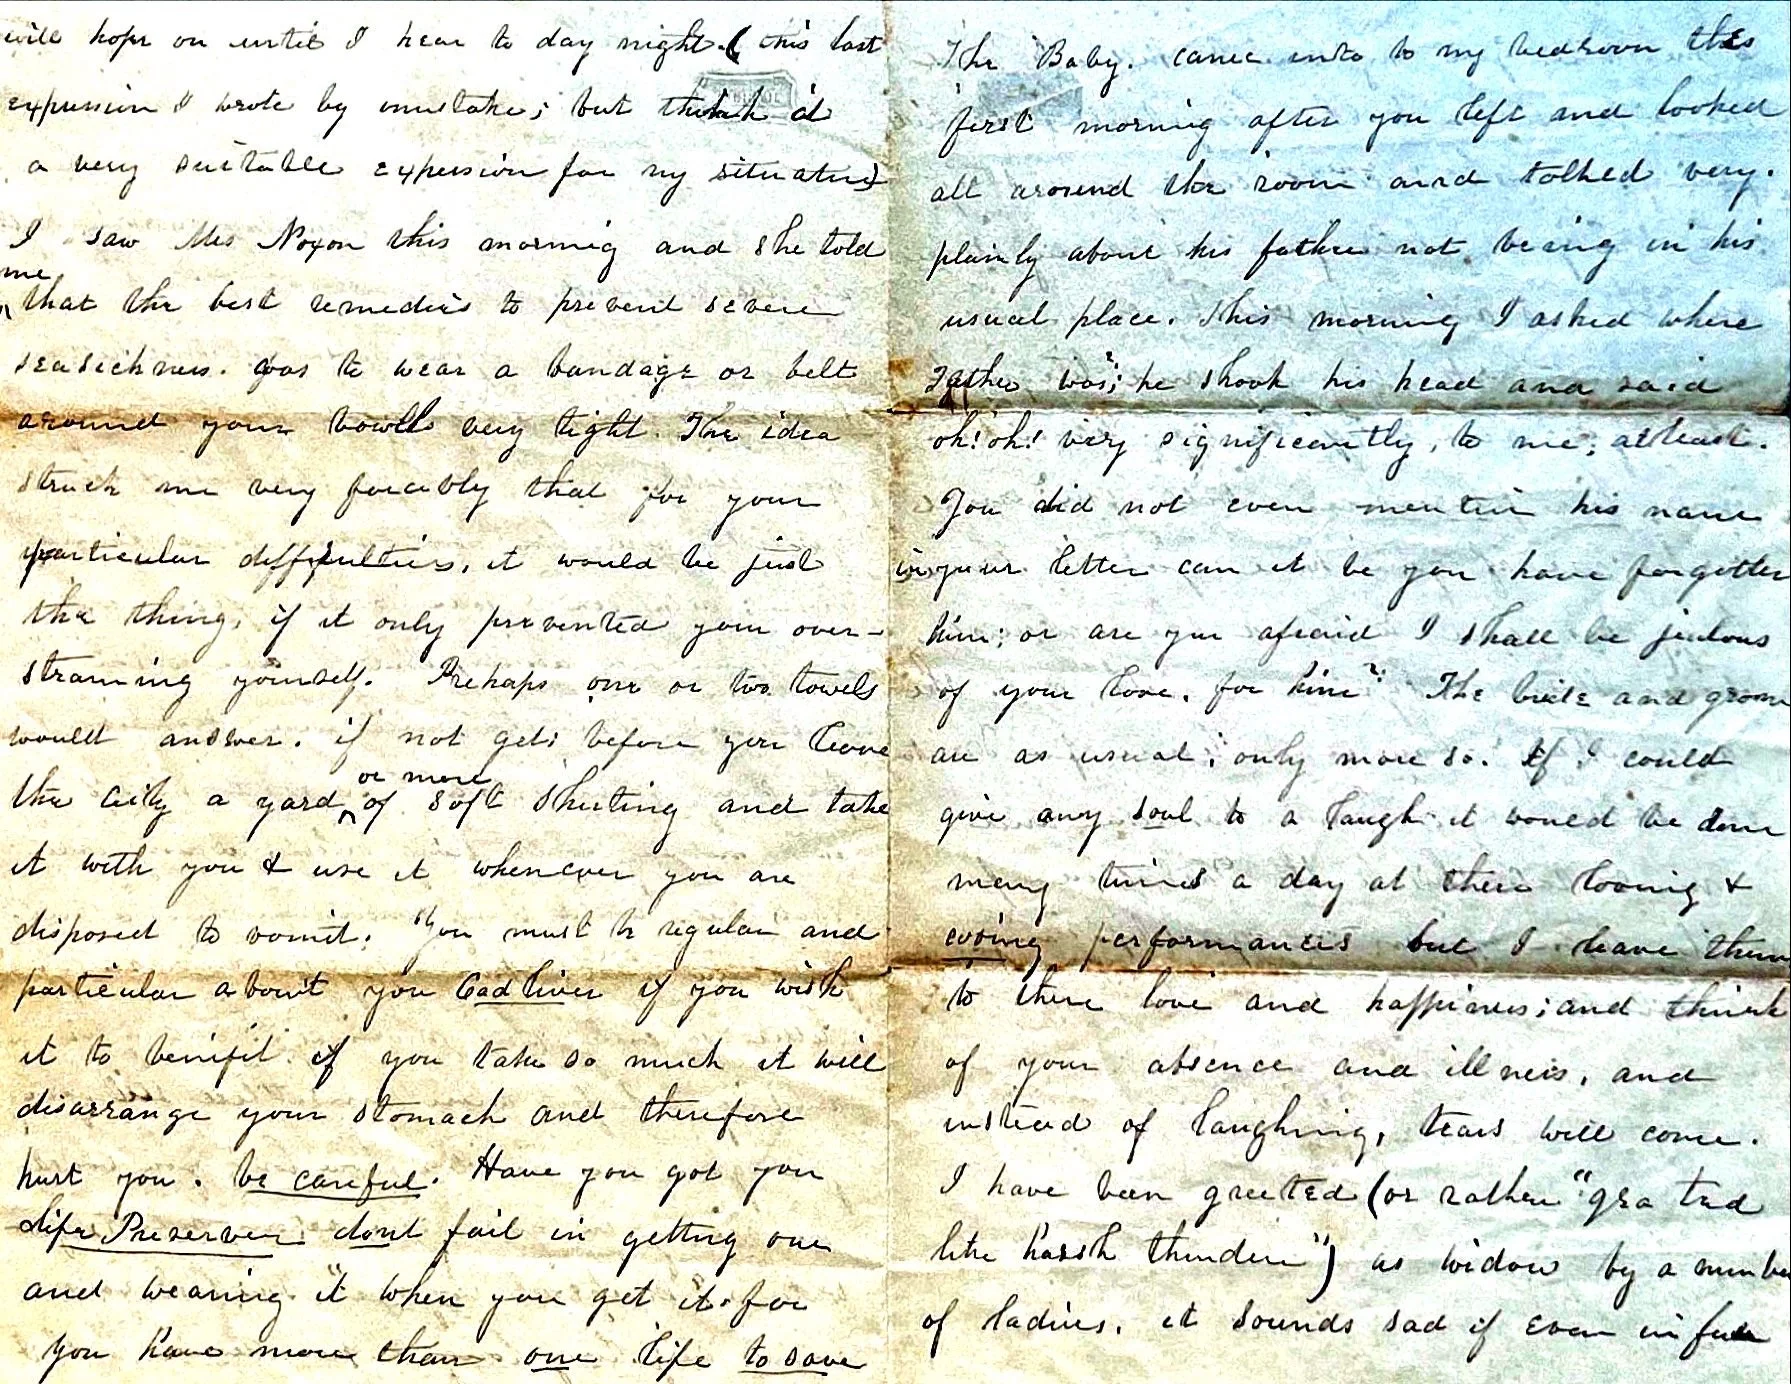 will hope on until I hear to day night. (this last
expression I wrote by mistake; but think it
a very suitable expression for my situation)
I saw Mrs Noxon this morning and she told
me
that the best remedies to prevent severe
seasickness. was to wear a bandage or belt
around your bowells very tight. The idea
struck me very forcibly that for your
particular difficulties, it would be just
the thing, if it only prevented your over-
straining yourself. Prehaps one or two towels
would answer. if not get; before you leave
or more
the city a yard of soft sheeting and take
it with you & use it whenever you are
disposed to vomit. "You must be regular and
particular about you Codliver if you wish
it to benifit. if you take so much it will
disarrange your stomach and therefore
hurt you. be careful. Have you got you
Life Preserver dont fail in getting one
and wearing it when you get it. for
you have more than one life to save
The Baby. came into to my bedroom the
first morning after you left and looked
all around the room and talked very.
plainly about his father not being in his
usual place. This morning I asked where
Father was?; he shook his head and said
oh! oh! very significantly, to me; at least.
You did not even mention his name
in your letter can it be you have forgotten
him; or are you afraid I shall be jealous
of your love. for him? The bride and groom
are as usual; only more so. If I could
give any soul to a laugh it would be done
many times a day at there looing &
cooing performances but I leave them
to there love and happiness; and think
of your absence and illness, and
instead of laughing, tears will come.
I have been greeted (or rather "grated
like harsh thunder") as widow by a number
of ladies. it sounds sad if even in fun